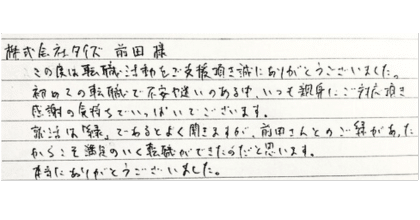 株式会社タイズ 前田 様
この度は転職活動をご支援頂き誠にありがとうございました。
初めての転職で不安や迷いのある中、いつも親身にご対応頂き
感謝の気持ちでいっぱいでございます。
就活は「縁」であるとよく聞きますが、前田さんとのご縁があった
からこそ満足のいく転職ができたのだと思います。
本当にありがとうございました。